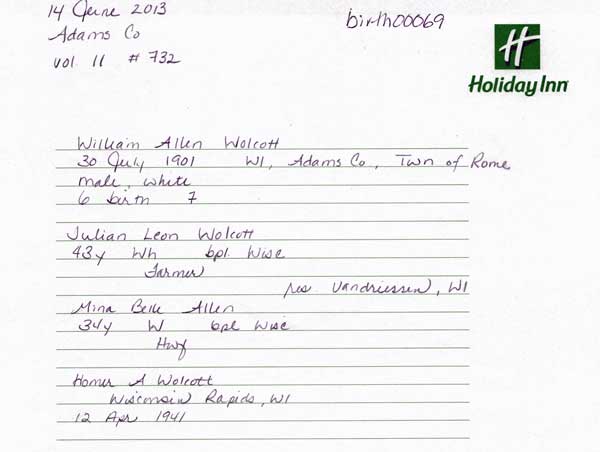 14 June 2013
birth00069
Adams Co
vol. 11 # 732
H
Holiday Inn
William Allen Wolcott
30 July 1901 WI, Adams Co, Twn of Rome
male, white
6 birth 7
Julian Leon Wolcott
43y Wh bpl. Wisc
Farmer
res Vandriessen, WI
Mina Belle Allen
34y W bpl Wisc
Hwf
Homer A Wolcott
Wisconsin Rapids, WI
12 Apr 1941